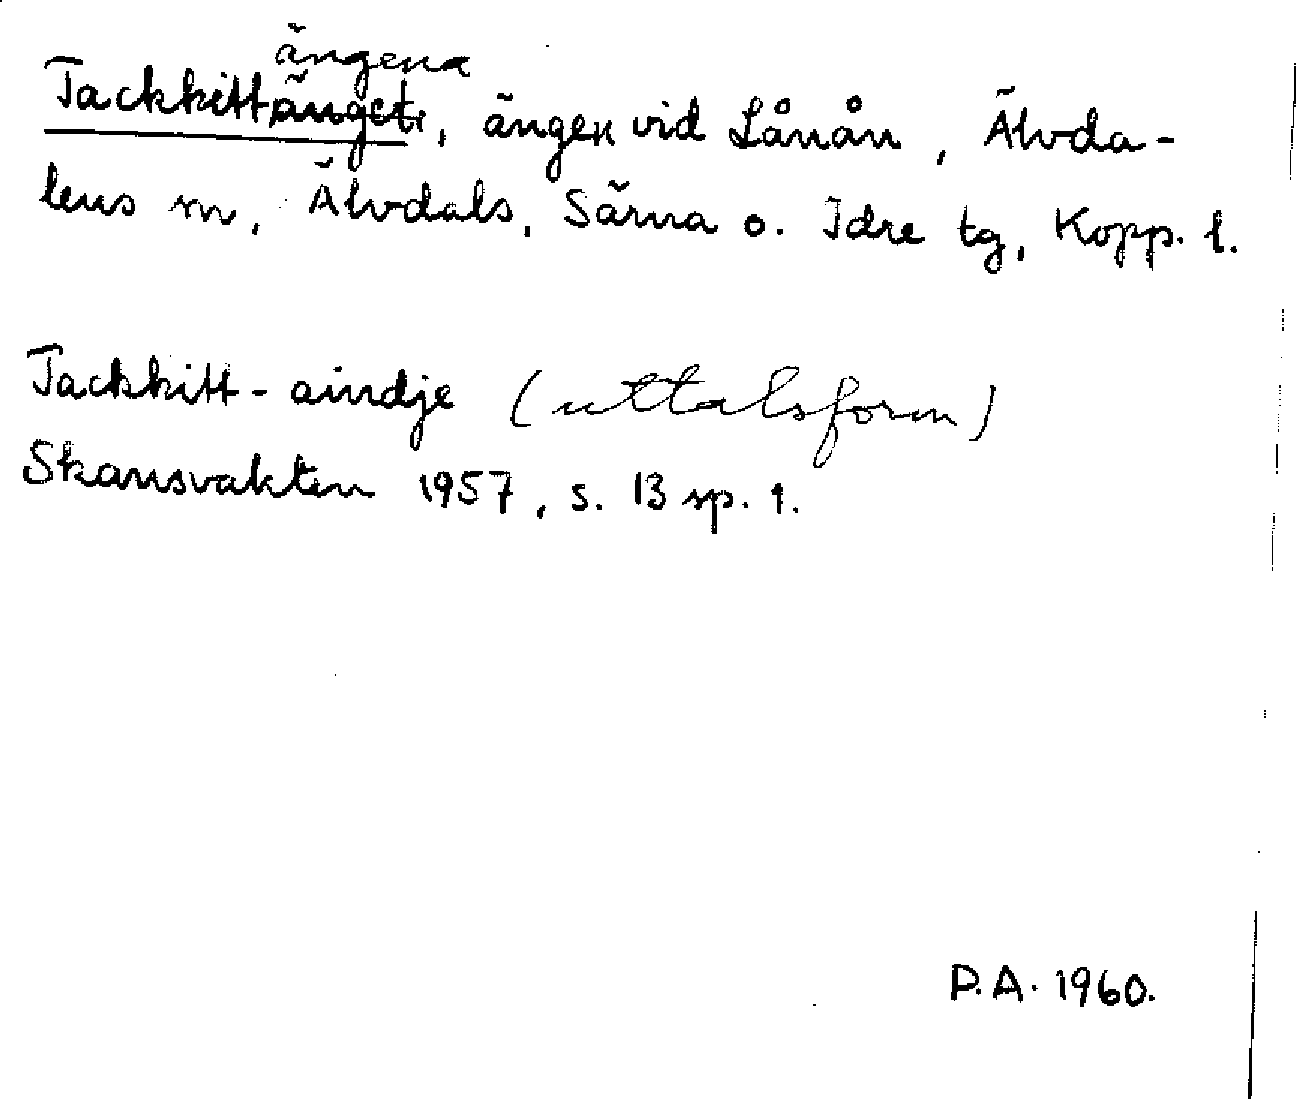 ängena
Tackkittänget, ängen vid Lånån, Älvda-
lens sn, Älvdals, Särna o. Idre tg, Kopp. l.
Tackkitt-aindje (uttalsform)
Skansvakten 1957, s. 13 sp. 1.
P.A. 1960.